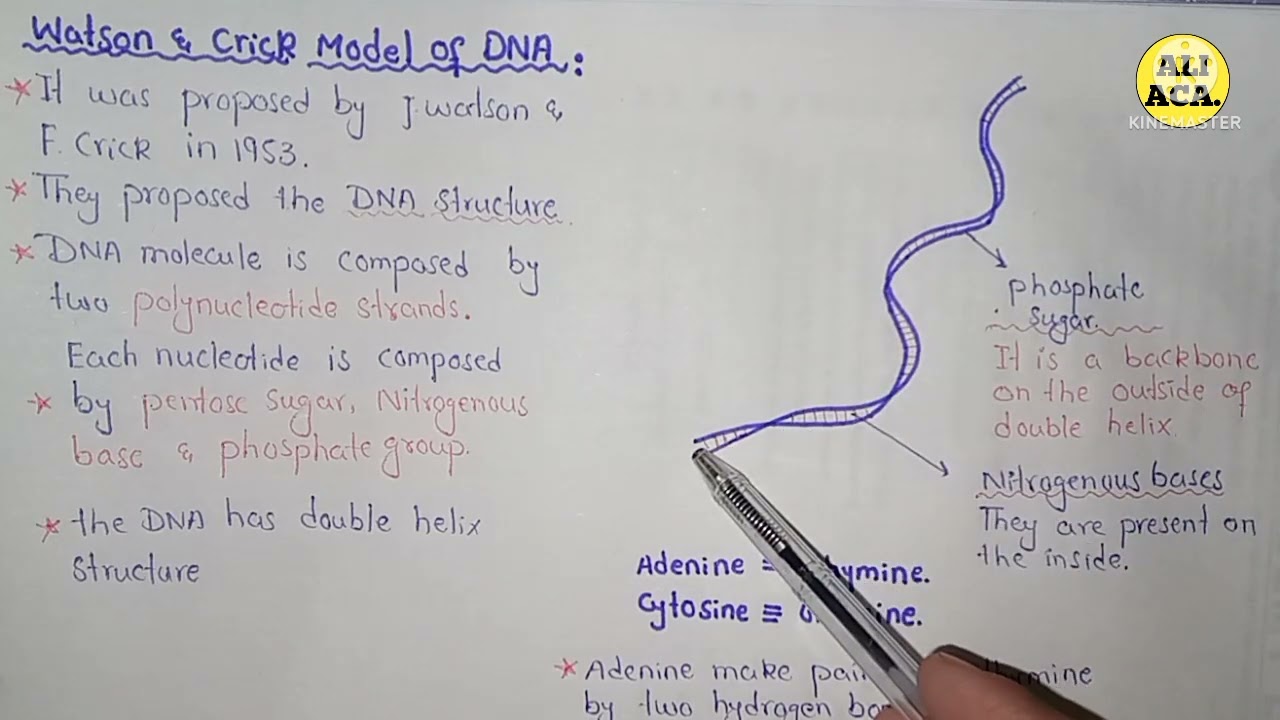 Watson & Crick Model of DNA:
* It was proposed by J. Watson &
F. Crick in 1953.
* They proposed the DNA Structure.
* DNA molecule is composed by
two polynucleotide strands.
Each nucleotide is composed
* by pentose sugar, Nitrogenous
base & phosphate group.
* the DNA has double helix
Structure
ALI
ACA.
KINEMASTER
phosphate
Sugar.
It is a backbone
on the outside of
double helix.
Nitrogenous bases
They are present on
the inside.
Adenine = hymine.
Cytosine ≡ ine.
* Adenine make pai
by two hydrogen bo